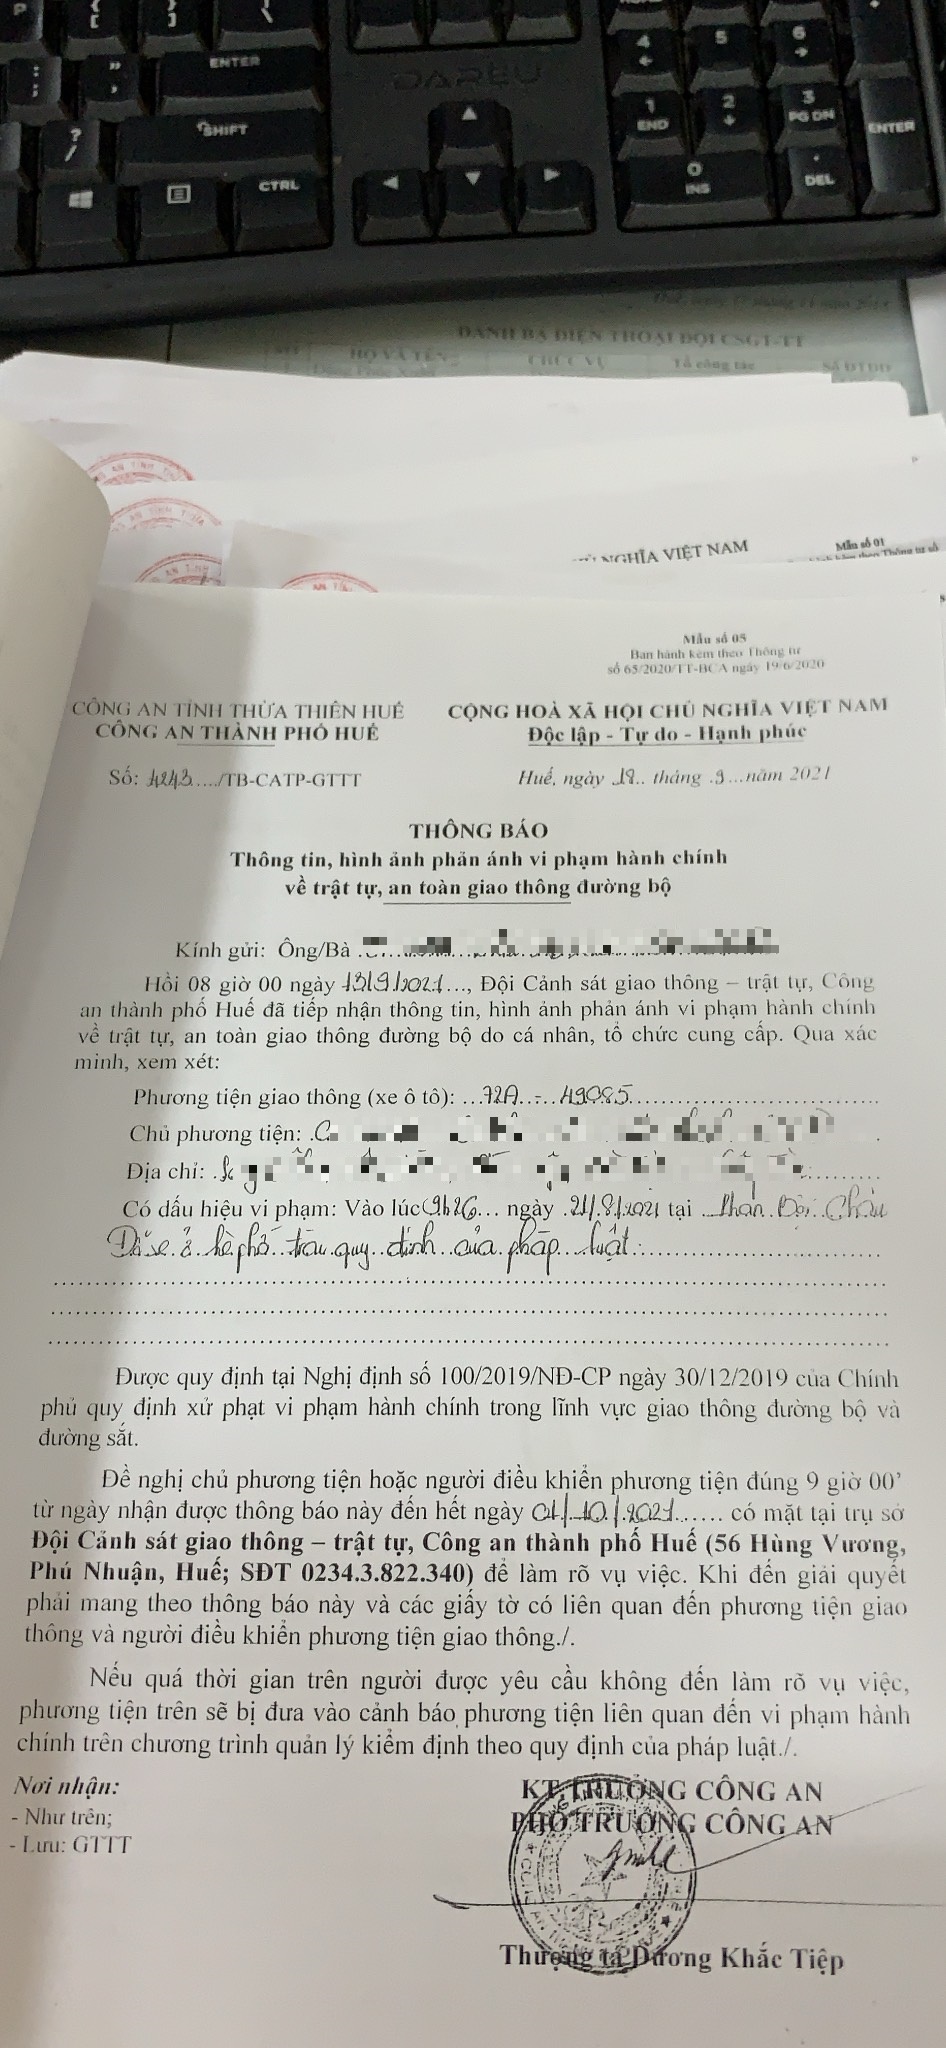 P
{
[
}
]
|
\
4
5
6
:
;
"
,
ENTER
DAREU
1
END
2
3
PG DN
ENTER
?
/
SHIFT
0
INS
.
DEL
CTRL
DANH BẠ ĐIỆN THOẠI ĐỘI CSGT-TT
HỌ VÀ TÊN
CHỨC VỤ
Tổ công tác
Số ĐTDĐ
NGHĨA VIỆT NAM
Mẫu số 01
kèm theo Thông tư số
Mẫu số 05
Ban hành kèm theo Thông tư
số 65/2020/TT-BCA ngày 19/6/2020
CÔNG AN TỈNH THỪA THIÊN HUẾ
CÔNG AN THÀNH PHỐ HUẾ
CỘNG HOÀ XÃ HỘI CHỦ NGHĨA VIỆT NAM
Độc lập - Tự do - Hạnh phúc
Số: 4243..../TB-CATP-GTTT
Huế, ngày 18.. tháng .9...năm 2021
THÔNG BÁO
Thông tin, hình ảnh phản ánh vi phạm hành chính
về trật tự, an toàn giao thông đường bộ
Kính gửi: Ông/Bà
Hồi 08 giờ 00 ngày 13/9/2021..., Đội Cảnh sát giao thông – trật tự, Công
an thành phố Huế đã tiếp nhận thông tin, hình ảnh phản ánh vi phạm hành chính
về trật tự, an toàn giao thông đường bộ do cá nhân, tổ chức cung cấp. Qua xác
minh, xem xét:
Phương tiện giao thông (xe ô tô): ...72A...-...49085
Chủ phương tiện:
Địa chỉ:
Có dấu hiệu vi phạm: Vào lúc 9h26... ngày .21/8/2021 tại ..Phan Bội Châu
Đỗ xe ở hè phố trái quy định của pháp luật
Được quy định tại Nghị định số 100/2019/NĐ-CP ngày 30/12/2019 của Chính
phủ quy định xử phạt vi phạm hành chính trong lĩnh vực giao thông đường bộ và
đường sắt.
Đề nghị chủ phương tiện hoặc người điều khiển phương tiện đúng 9 giờ 00'
từ ngày nhận được thông báo này đến hết ngày 01/10/2021....... có mặt tại trụ sở
Đội Cảnh sát giao thông – trật tự, Công an thành phố Huế (56 Hùng Vương,
Phú Nhuận, Huế; SĐT 0234.3.822.340) để làm rõ vụ việc. Khi đến giải quyết
phải mang theo thông báo này và các giấy tờ có liên quan đến phương tiện giao
thông và người điều khiển phương tiện giao thông./.
Nếu quá thời gian trên người được yêu cầu không đến làm rõ vụ việc,
phương tiện trên sẽ bị đưa vào cảnh báo phương tiện liên quan đến vi phạm hành
chính trên chương trình quản lý kiểm định theo quy định của pháp luật./.
Nơi nhận:
- Như trên;
- Lưu: GTTT
KT.TRƯỞNG CÔNG AN
PHÓ TRƯỞNG CÔNG AN
Thượng tá Dương Khắc Tiệp